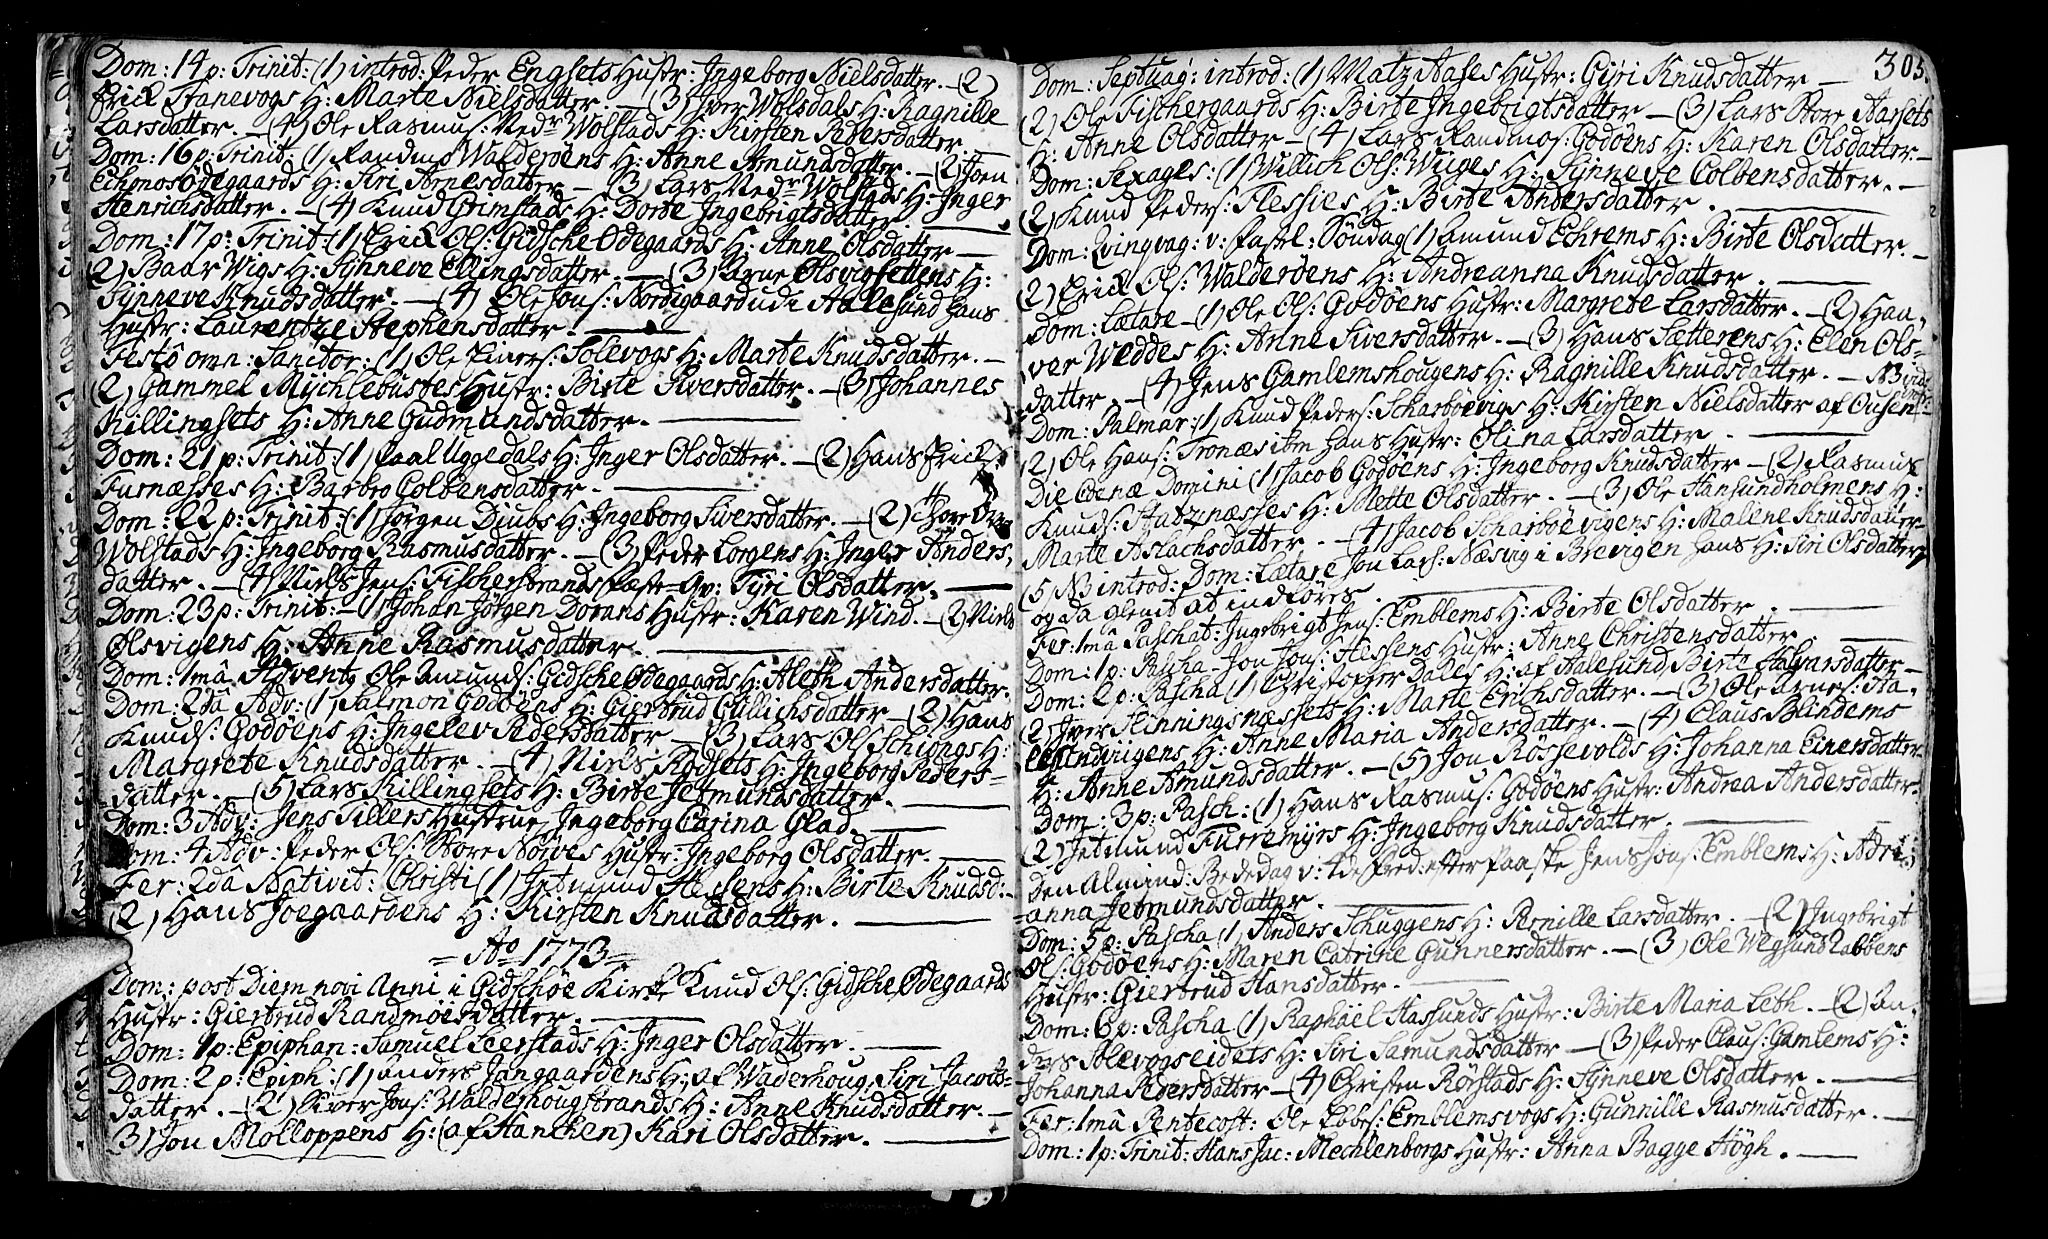 Dom: 14 p: Trinit: (1) introd: Peder Engsets Hustr: Ingeborg Nielsdatter. — (2)
Erick Tranevogs H: Marte Nielsdatter. — (3) Iver Wolsdals H: Ragnille
Larsdatter. — (4) Ole Rasmus: Nedr Wolstads H: Kirsten Siversdatter. —
Dom: 16 p: Trinit (1) Randmo Walderøens H: Anne Amundsdatter. — (2) Joen
Echonos Ødegaards H: Siri Arnesdatter — (3) Lars Nedr Wolstads H: Inger
Henrichsdatter. — (4) Knud Grimstads H: Dorte Ingebrigtsdatter —
Dom: 17 p: Trinit: (1) Erick Ols: Gidsche Ødegaards H: Anne Olsdatter —
(2) Baar Wigs H: Synneve Ellingsdatter. — (3) Arne Olsvigsettens H:
Synneve Knudsdatter. — (4) Ole Jons: Nordgaard udi Aalesund hans
Hustr: Laurentze Stephensdatter. —
Festô omn: Sanctor: (1) Ole Einers: Solevogs H: Marte Knudsdatter. —
(2) Gammel Mychlebustes Hustr: Birte Siversdatter. — (3) Johannes
Killingsets H: Anne Gudmundsdatter. —
Dom: 21 p: Trinit: (1) Paal Uggedals H: Inger Olsdatter. — (2) Hans Erick:
Furnæsses H: Barbro Colbensdatter. —
Dom: 22 p: Trinit: (1) Jørgen Diubs H: Ingeborg Siversdatter. — (2) Thore Øvre
Wolstads H: Ingeborg Rasmusdatter. — (3) Peder Lorgens H: Inger Anders,
datter. — (4) Niels Jens: Fischerstrands Fæste-Qv: Tyri Olsdatter. —
Dom: 23 p: Trinit: — (1) Johan Jörgen Dorans Hustr: Karen Wind. — (2) Niels
Olsvigens H: Anne Rasmusdatter. —
Dom: 1mâ Advent, Ole Amunds: Gidsche Ødegaards H: Aleth Andersdatter.
Dom: 2dâ Adv: (1) Salmon Godöens H: Giertrud Gullichsdatter — (2) Hans
Knuds: Godöens H: Ingelev Pedersdatter — (3) Lars Ols Schiongs H:
Margrete Knudsdatter. — (4) Niels Rødsets H: Ingeborg Peders-
datter. — (5) Lars Killingsets H: Birte Jetmundsdatter. —
Dom: 3 Adv: Jens Tillers Hustrue Ingeborg Carina Glad. —
Dom: 4 Adv: Peder Ols: Store Nörves Hustr: Ingeborg Olsdatter. —
Fer: 2dâ Nativit: Christi (1) Jetmund Hessens H: Birte Knudsd: —
(2) Hans Joegaardens H: Kirsten Knudsdatter. —
= Ao 1773 =
Dom: post Diem novi Anni i Gidschöe Kirke Knud Ols: Gidsche Ødegaards
Hustr: Giertrud Randmöesdatter. —
Dom: 1 p: Epiphan: Samuel Leerstads H: Inger Olsdatter. —
Dom: 2 p: Epiph: (1) Anders Jangaardens H: af Waderhoug, Siri Jacobs-
datter. — (2) Siver Jons: Walderhougstrands H: Anne Knudsdatter. —
3) Jon Molloppens H: (af Hanchen) Kari Olsdatter. —
305
Dom: Septuag: introd: (1) Matz Aases Hustr: Gyri Knudsdatter —
(2) Ole Fischergaards H: Birte Ingebrigtsdatter — (3) Lars Store Aarsets
H: Anne Olsdatter — (4) Lars Randmos: Godöens H: Karen Olsdatter. —
Dom: Sexages: (1) Willich Ols: Wiiges H: Synneve Colbensdatter. —
(2) Knud Peders: Flessies H: Birte Andersdatter. —
Dom: Qvinqvag: v: Fastel: Söndag (1) Amund Echrems H: Birte Olsdatter. —
(2) Erick Ols: Walderöens H: Andreanna Knudsdatter. —
Dom: Lætare — (1) Ole Ols: Godöens Hustr: Margrete Larsdatter. — (2) Han,
ver Weddes H: Anne Siversdatter. — (3) Hans Sætterens H: Elen Ols=
datter. — (4) Jens Gamlemshougens H: Ragnille Knudsdatter. — NB
Dom: Palmar: (1) Knud Peders: Scharböevigs H: Kirsten Nielsdatter af Ousen
(2) Ole Hans: Tronæs ibm hans Hustr: Olina Larsdatter. —
Die Coenæ Domini (1) Jacob Godöens H: Ingeborg Knudsdatter — (2) Rasmus
Knuds: Hatznæsses H: Mette Olsdatter. — (3) Ole Hansundholmens H:
Marte Aslachsdatter. — (4) Jacob Scharböevigens H: Malene Knudsdatter
(5) NB introd: Dom: Lætare Jon Lars: Næsvog i Brevigen hans H: Siri Olsdatter
og da glemt at indföres. —
Fer: 1mâ Paschat: Ingebrigt Jens: Emblems H: Birte Olsdatter. —
Dom: 1 p: Pascha — Jon Jons: Hessens Hustr: Anne Christensdatter —
Dom: 2 p: Pascha (1) Christopher Dalls H: af Aalesund Birte Halvarsdatter —
(2) Iver Flinningsnæssets H: Marte Erichsdatter. — (3) Ole Arnes: Aa,
lesundviigens H: Anne Maria Andersdatter. — (4) Claus Blindems
H: Anne Amundsdatter. — (5) Jon Rössevolds H: Johanna Einersdatter
Dom: 3 p: Pasch: (1) Hans Rasmus: Godöens Hustr: Andrea Andersdatter.
(2) Jetmund Furremyrs H: Ingeborg Knudsdatter. —
Den Almind: Bededag v: 4de Fred: efter Paaske Jens Jons: Emblems H: Adri,
=anna Jetmundsdatter. —
Dom: 5 p: Pascha (1) Anders Schuggens H: Pernille Larsdatter. — (2) Ingebrigt
Ols: Godöens H: Maren Catrine Gunnersdatter. — (3) Ole Wegsund Raböens
Hustr: Giertrud Hansdatter. —
Dom: 6 p: Pascha (1) Raphäel Hassunds Hustr: Birte Maria Leth. — (2) An,
ders Solevogseidets H: Siri Samundsdatter — (3) Peder Claus: Gamlems H:
Johanna Pedersdatter — (4) Christen Rörstads H: Synneve Olsdatter. —
Fer: 1mâ Pentecost: Ole Ebbes: Emblemsvogs H: Gunnille Rasmusdatter. —
Dom: 1 p: Trinit: Hans Jac: Mechlenborgs Hustr: Anna Bagge Högh. —